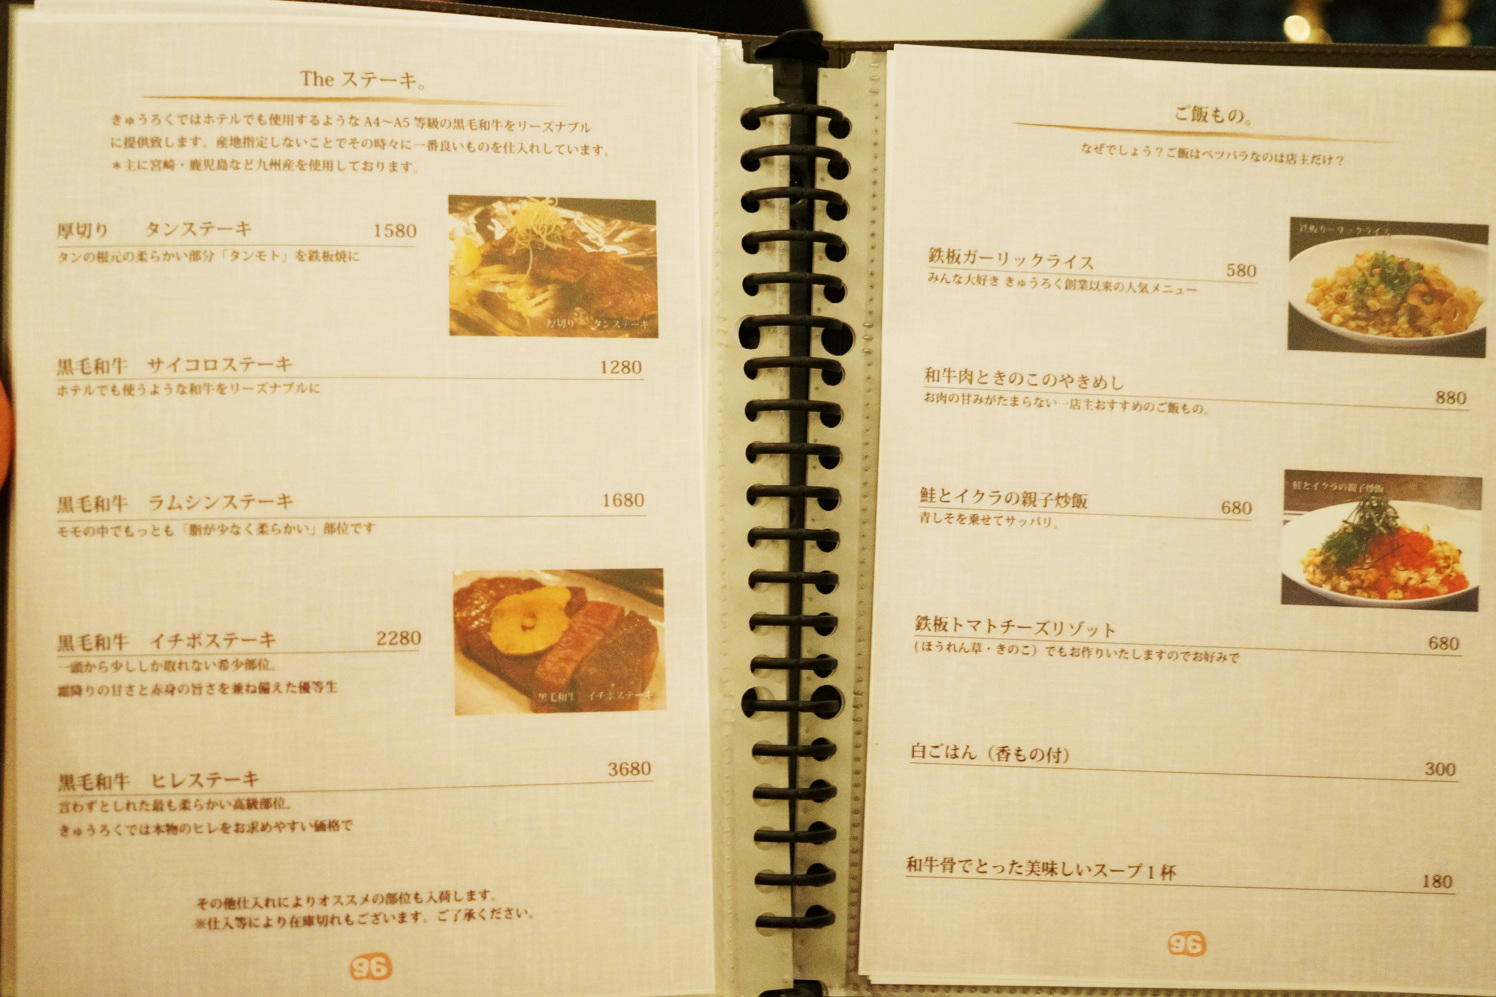 The ステーキ。
きゅうろくではホテルでも使用するような A4〜A5 等級の黒毛和牛をリーズナブル
に提供致します。産地指定しないことでその時々に一番良いものを仕入れしています。
＊主に宮崎・鹿児島など九州産を使用しております。
厚切り　タンステーキ 1580
タンの根元の柔らかい部分「タンモト」を鉄板焼に
厚切り　タンステーキ
黒毛和牛　サイコロステーキ 1280
ホテルでも使うような和牛をリーズナブルに
黒毛和牛　ラムシンステーキ 1680
モモの中でもっとも「脂が少なく柔らかい」部位です
黒毛和牛　イチボステーキ 2280
一頭から少ししか取れない希少部位。
霜降りの甘さと赤身の旨さを兼ね備えた優等生
黒毛和牛　イチボステーキ
黒毛和牛　ヒレステーキ 3680
言わずとしれた最も柔らかい高級部位。
きゅうろくでは本物のヒレをお求めやすい価格で
その他仕入れによりオススメの部位も入荷します。
※仕入等により在庫切れもございます。ご了承ください。
96
ご飯もの。
なぜでしょう？ご飯はベツバラなのは店主だけ？
鉄板ガーリックライス 580
みんな大好き きゅうろく創業以来の人気メニュー
鉄板ガーリックライス
和牛肉ときのこのやきめし 880
お肉の甘みがたまらない…店主おすすめのご飯もの。
鮭とイクラの親子炒飯 680
青しそを乗せてサッパリ。
鮭とイクラの親子炒飯
鉄板トマトチーズリゾット 680
(ほうれん草・きのこ）でもお作りいたしますのでお好みで
白ごはん（香もの付） 300
和牛骨でとった美味しいスープ１杯 180
96